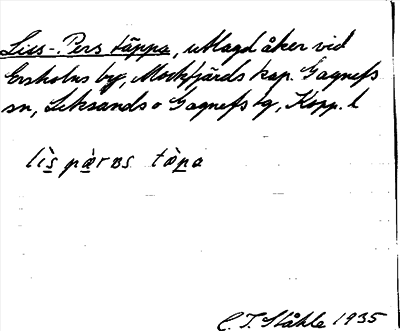 Liss-Pers täppa, utlagd åker vid
Ersholns by, Mockfjärds kap. Gagnefs
sn, Leksands o Gagnefs tg, Kopp. l
lìs pæ̀rɐs tæ̀pa
C. I. Ståhle 1935